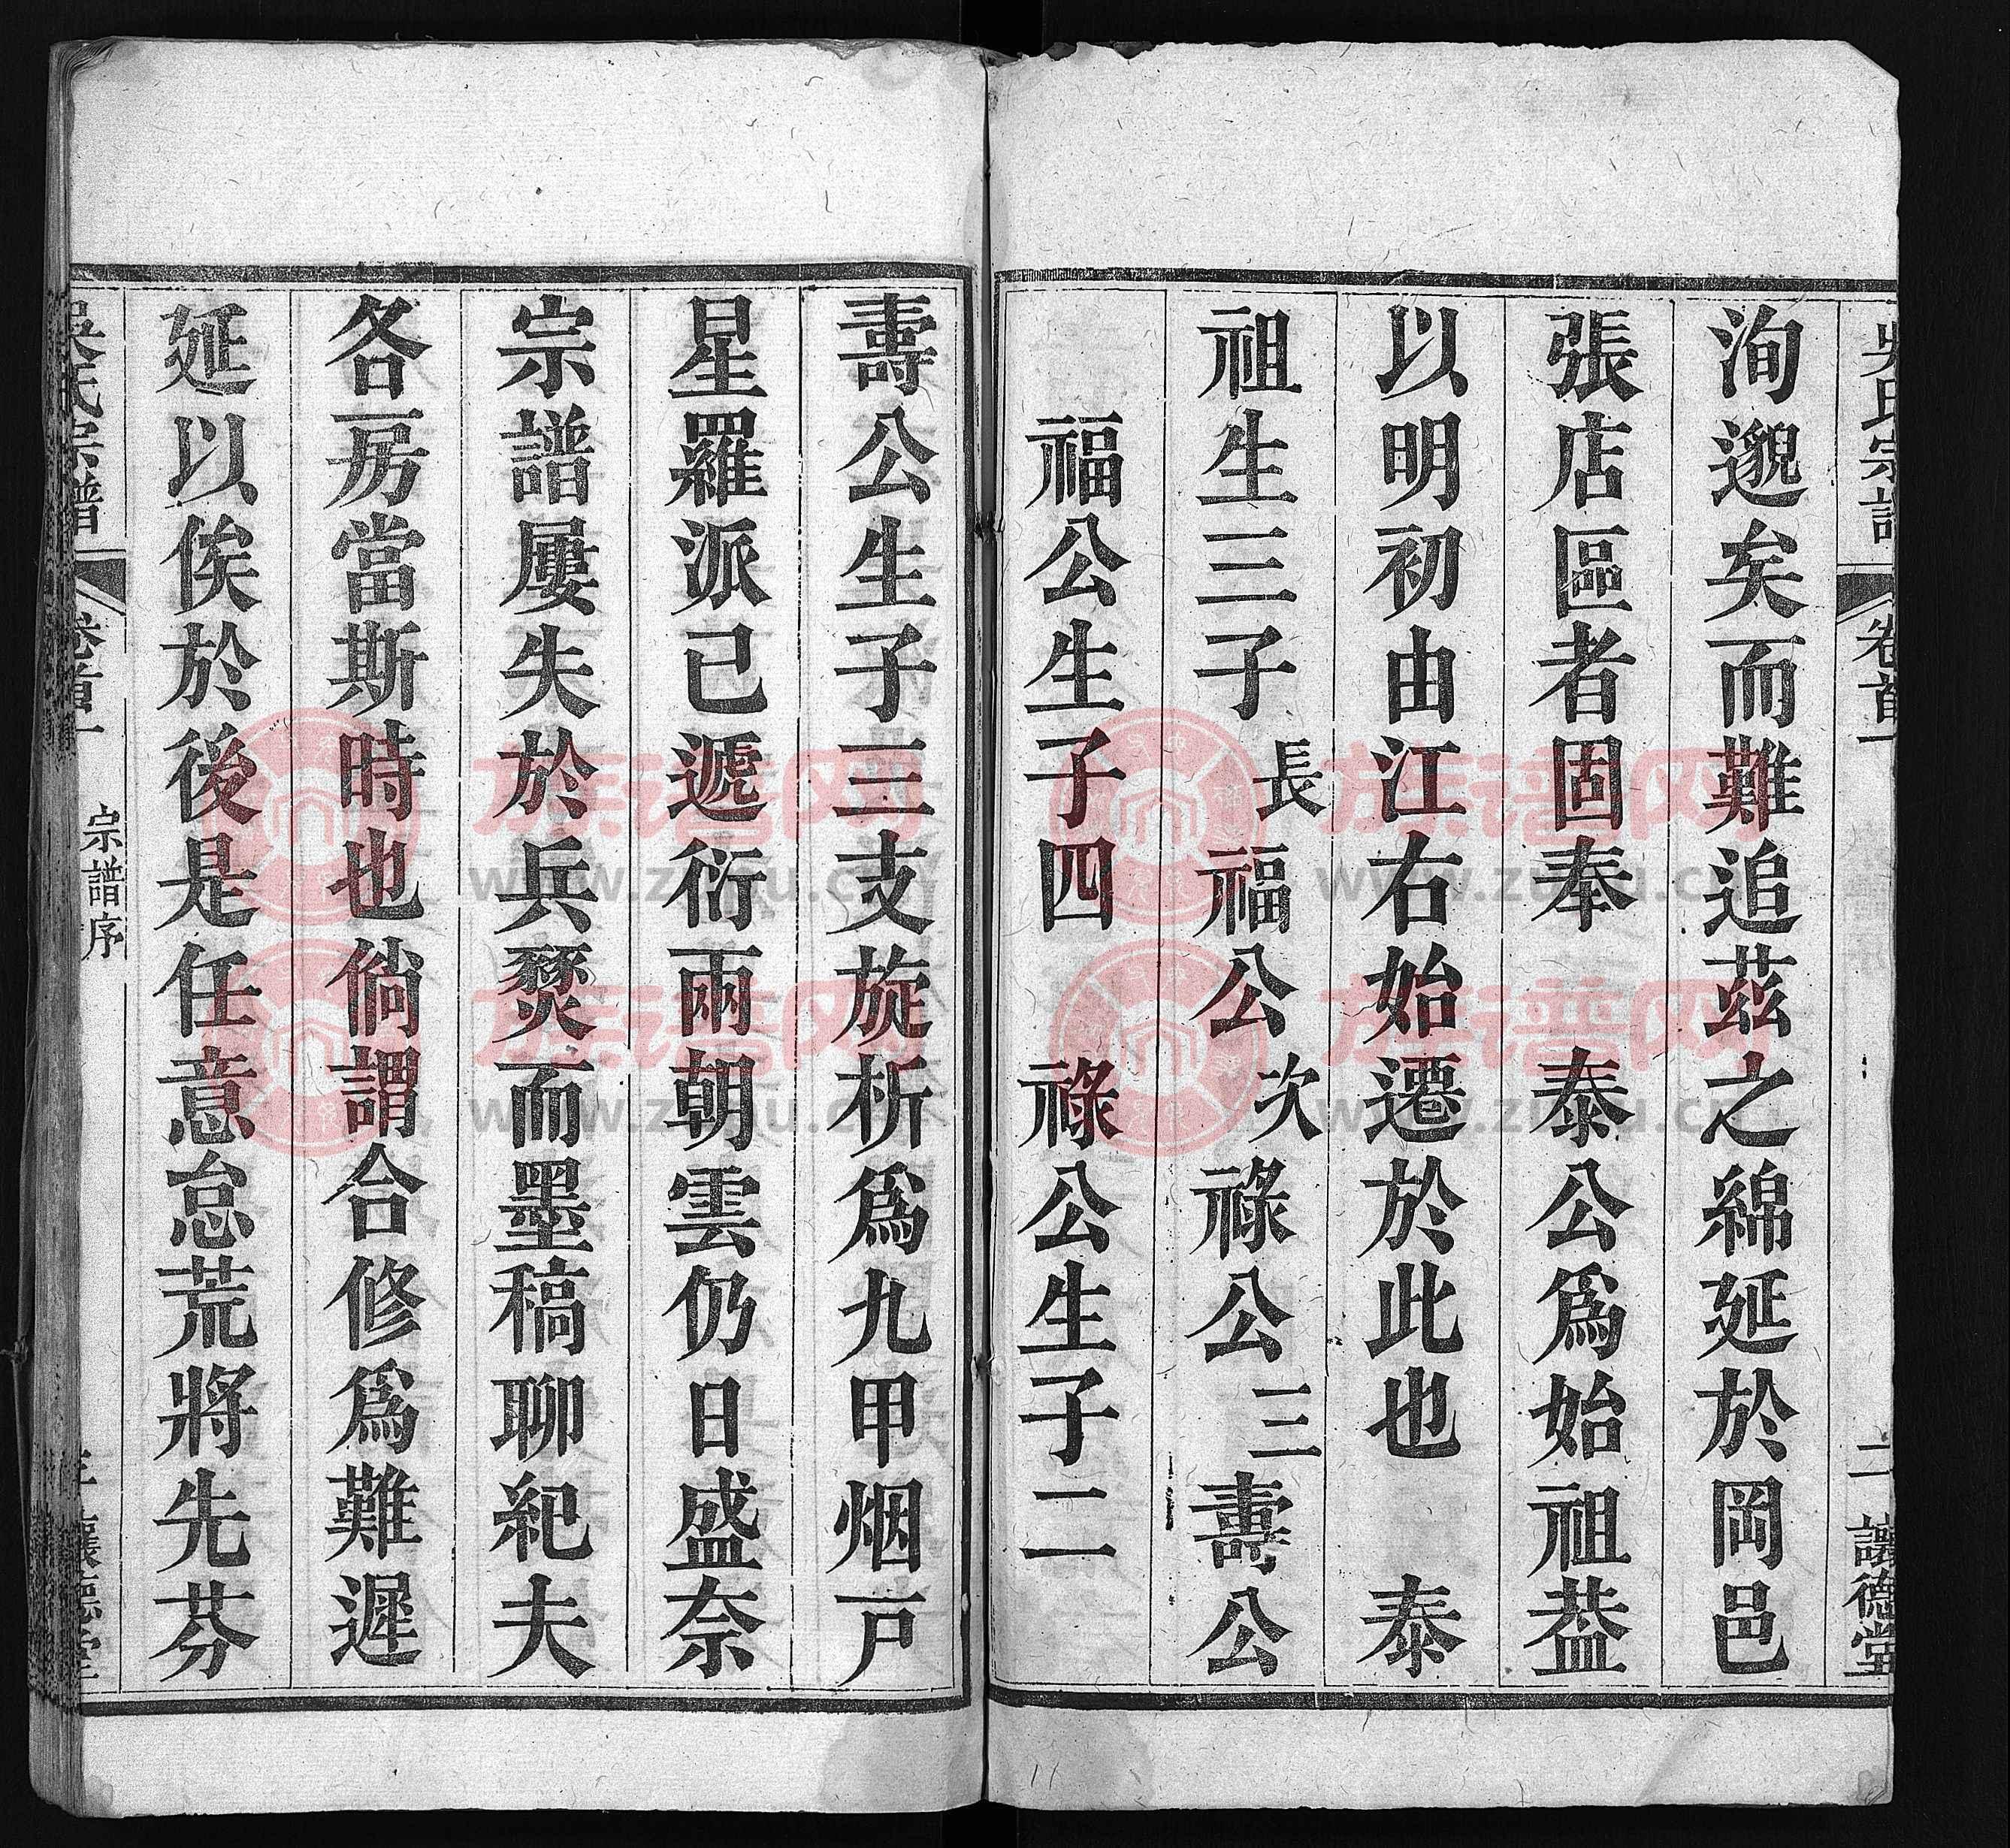 吳氏宗譜 卷首一 二 讓德堂
洵邈矣而難追茲之綿延於岡邑
張店區者固奉 泰公爲始祖葢
以明初由江右始遷於此也 泰
祖生三子 長福公 次祿公 三壽公
福公生子四 祿公生子二
壽公生子三支旋析爲九甲烟戸
星羅派已遞衍兩朝雲仍日盛奈
宗譜屢失於兵燹而墨稿聊紀夫
各房當斯時也倘謂合修爲難遲
延以俟於後是任意怠荒將先芬
吳氏宗譜 卷首一 宗譜序 三 讓德堂
族谱网
www.zupu.cn
族谱网
www.zupu.cn
族谱网
www.zupu.cn
族谱网
www.zupu.cn
11